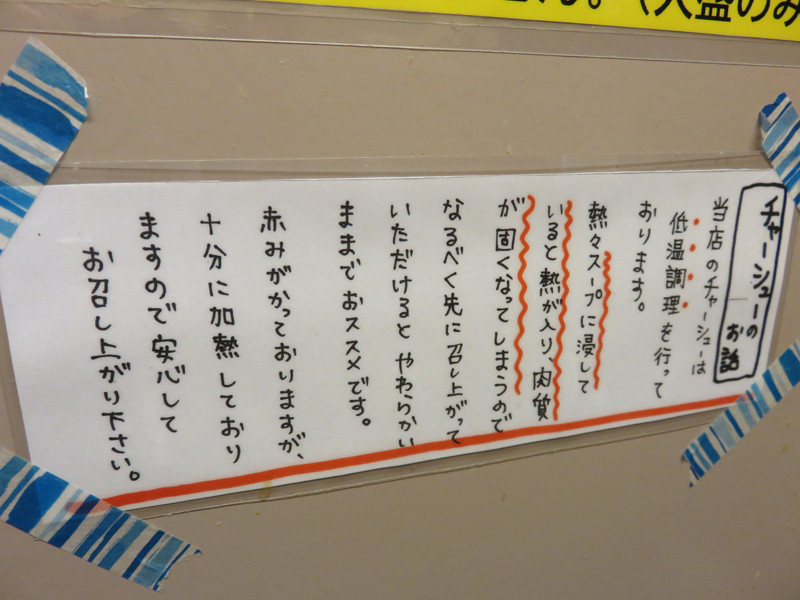 (大盛のみ
チャーシューのお話
当店のチャーシューは
低温調理を行って
おります。
熱々スープに浸して
いると熱が入り、肉質
が固くなってしまうので
なるべく先に召し上がって
いただけるとやわらかい
ままでおススメです。
赤みがかっておりますが、
十分に加熱しており
ますので安心して
お召し上がり下さい。